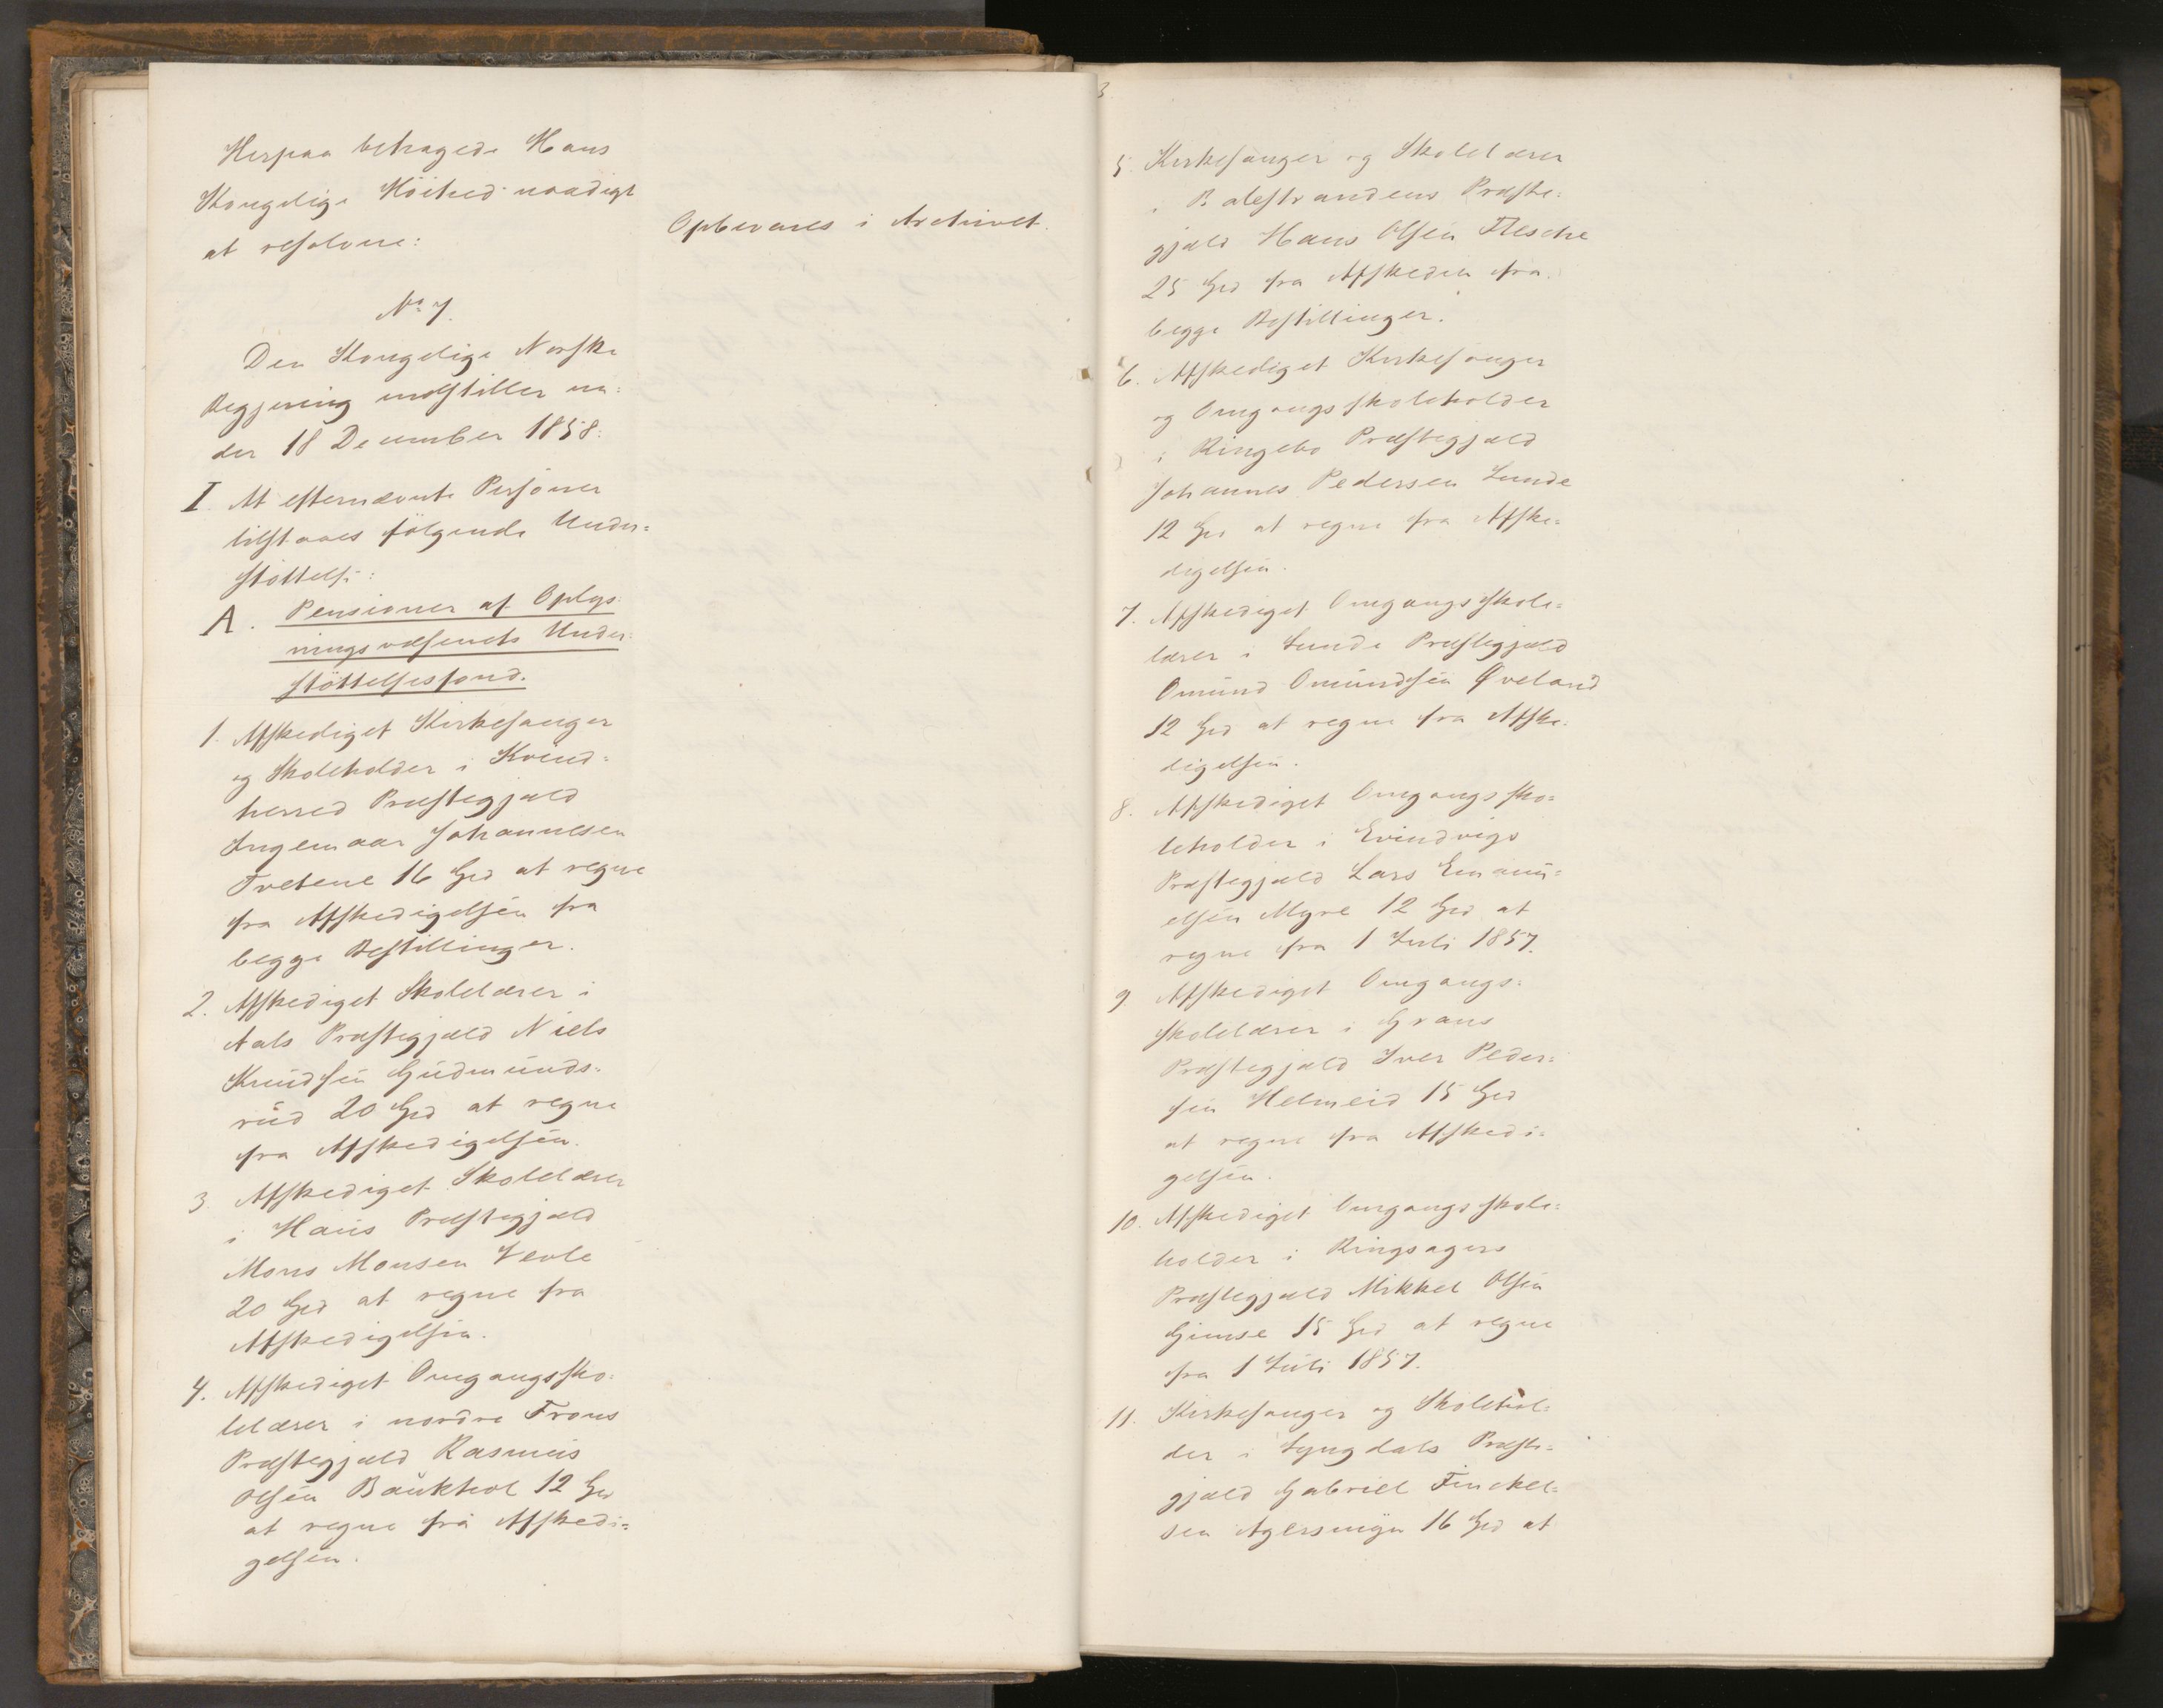 Herpaa behagede Hans
Kongelige Höihed naadigt
at resolvere:
Opbevares i Archivet.
No 7.
Den Kongelige Norske
Regjering indstiller un-
der 18 December 1858:
I. At efternævnte Personer
tilstaaes fölgende Under-
stöttelse:
A. Pensioner af Oplys-
ningsvæsenets Under-
stöttelsesfond.
1. Afskediget Kirkesanger
og Skoleholder i Kvind-
herred Præstegjæld
Ingemaar Johannesen
Tvetene 16 Spd at regne
fra Afskedigelsen fra
begge Bestillinger.
2. Afskediget Skolelærer i
Aals Præstegjæld Niels
Knudsen Gudmunds-
rud 20 Spd at regne
fra Afskedigelsen.
3 Afskediget Skolelærer
i Haus Præstegjæld
Mons Monsen
20 Spd at regne fra
Afskedigelsen.
4. Afskediget Omgangssko-
lelærer i nordre Frons
Præstegjæld Rasmus
Olsen Baukhol 12 Spd
at regne fra Afskedi-
gelsen.
3
5. Kirkesanger og Skolelærer
i Balestrandens Præste-
gjæld Hans Olsen Flesche
25 Spd fra Afskeden fra
begge Bestillinger.
6. Afskediget Kirkesanger
og Omgangsskoleholder
i Ringebo Præstegjæld
Johannes Pedersen Lunde
12 Spd at regne fra Afske-
digelsen.
7. Afskediget Omgangsskole-
lærer i Lunde Præstegjæld
Omund Omundsen Øveland
12 Spd at regne fra Afske-
digelsen.
8. Afskediget Omgangssko-
leholder i Evindvigs
Præstegjæld Lars Emanu-
elsen Myre 12 Spd at
regne fra 1 Juli 1857.
9 Afskediget Omgangs-
skolelærer i Grans
Præstegjæld Iver Peder-
sen Helmeid 15 Spd
at regne fra Afskedi-
gelsen.
10. Afskediget Omgangsskole-
holder i Ringsagers
Præstegjæld Mikkel Olsen
Gimse 15 Spd at regne
fra 1 Juli 1857.
11. Kirkesanger og Skolehol-
der i Lyngdals Præste-
gjæld Gabriel Finckel-
sen Agersmyr 16 Spd at